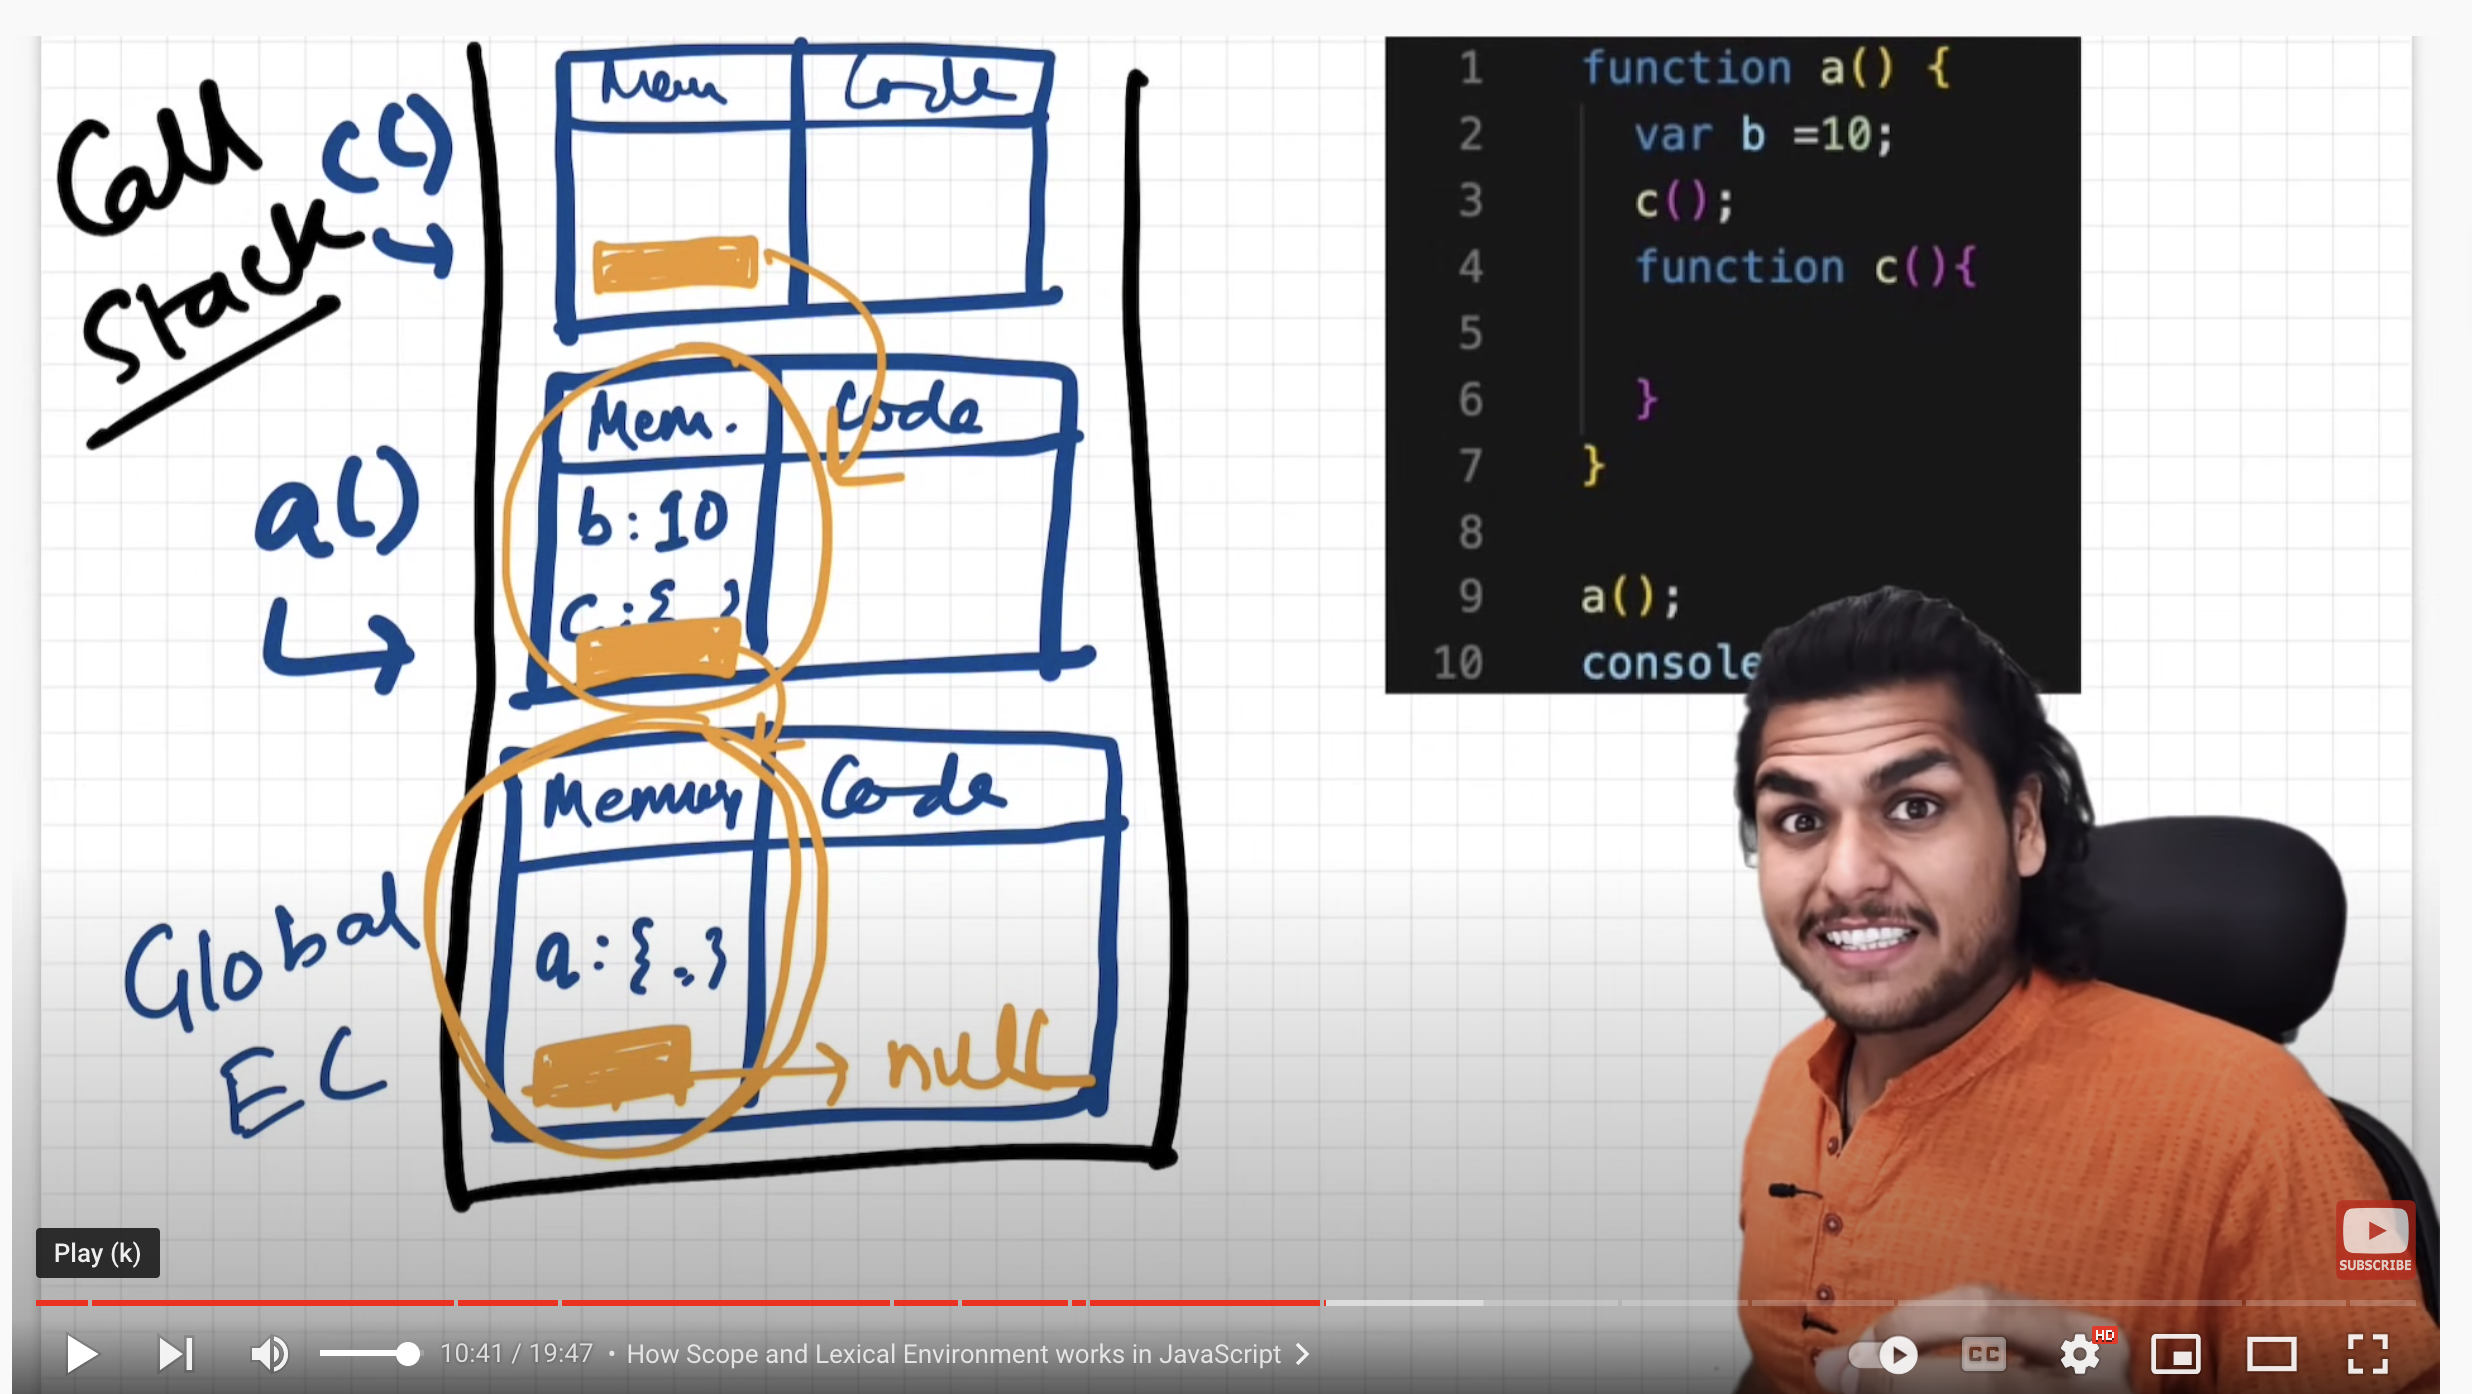 Call
Stack
c()
Mem Code
a()
Mem. Code
b:10
c:{ }
Global
EC
Memory Code
a:{.}
null
1 function a() {
2 var b =10;
3 c();
4 function c(){
5
6 }
7 }
8
9 a();
10 console
SUBSCRIBE
Play (k)
10:41 / 19:47 • How Scope and Lexical Environment works in JavaScript
CC
HD